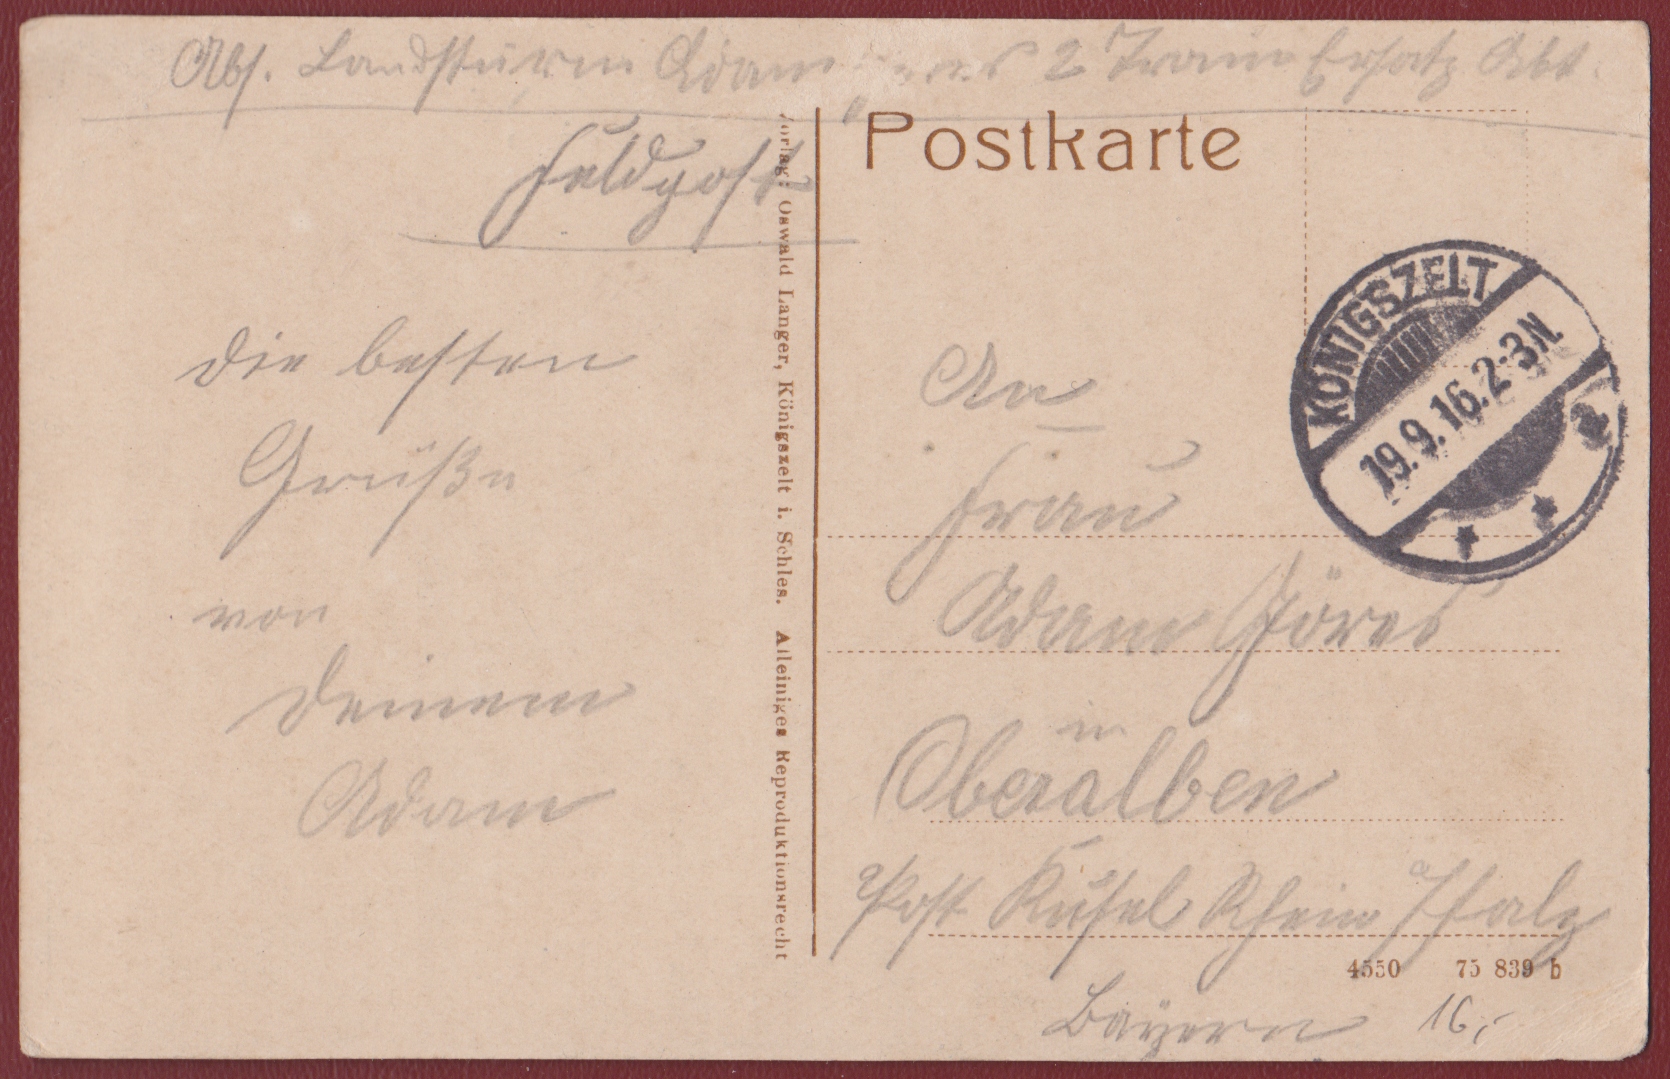 Abs. Landsturm Adam 2 Train Ersatz Abt.
Feldpost
Die besten
Grüße
von
Deinem
Adam
Verlag: Oswald Langer, Königszelt i. Schles. Alleiniges Reproduktionsrecht
Postkarte
KÖNIGSZELT
19.9.16.2-3N.
An
Frau
Adam Jöres
in
Oberalben
Post Kusel Rhein Pfalz
4550 75 839 b
Bayern 16,-